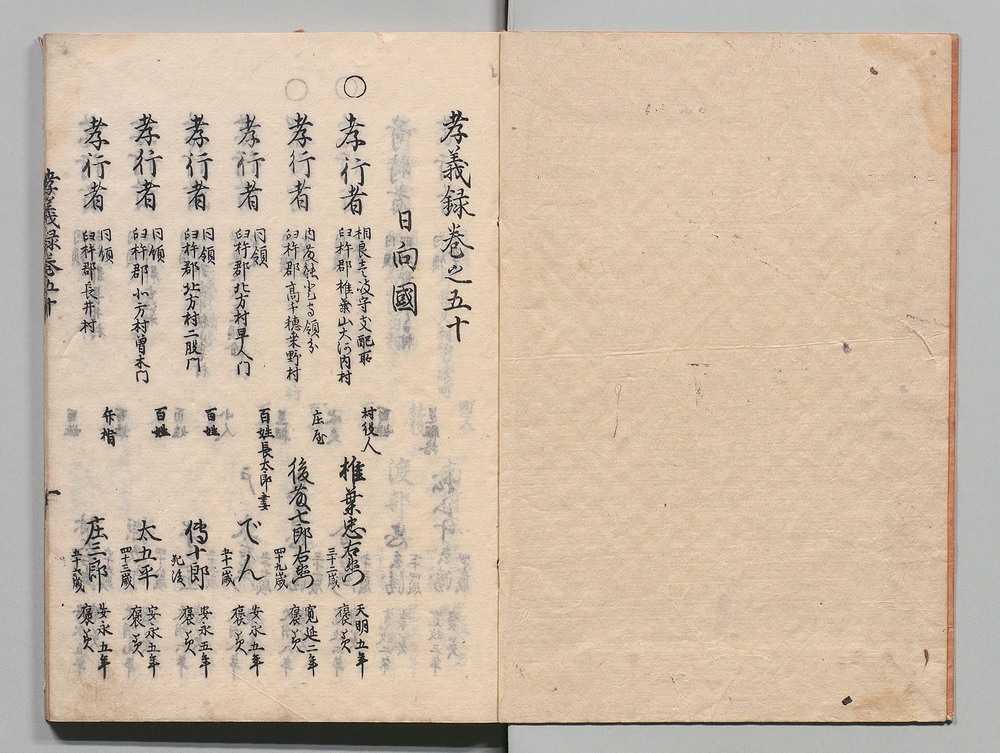 孝義録巻之五十
日向國
○孝行者 相良壱岐守支配所 臼杵郡椎葉山大河内村 村役人 椎葉忠右衛門 三十二歳 天明五年 褒美
孝行者 内藤能登守領分 臼杵郡高千穂桑野村 庄屋 後藤七郎右衛門 四十九歳 寛延二年 褒美
孝行者 同領 臼杵郡北方村早人門 百姓長太郎妻 でん 五十一歳 安永五年 褒美
孝行者 同領 臼杵郡北方村二股門 百姓 傳十郎 死後 安永五年 褒美
孝行者 同領 臼杵郡北方村曽木門 百姓 太五平 四十三歳 安永五年 褒美
孝行者 同領 臼杵郡長井村 弁指 庄三郎 安永五年 褒美
孝義録巻五十 一